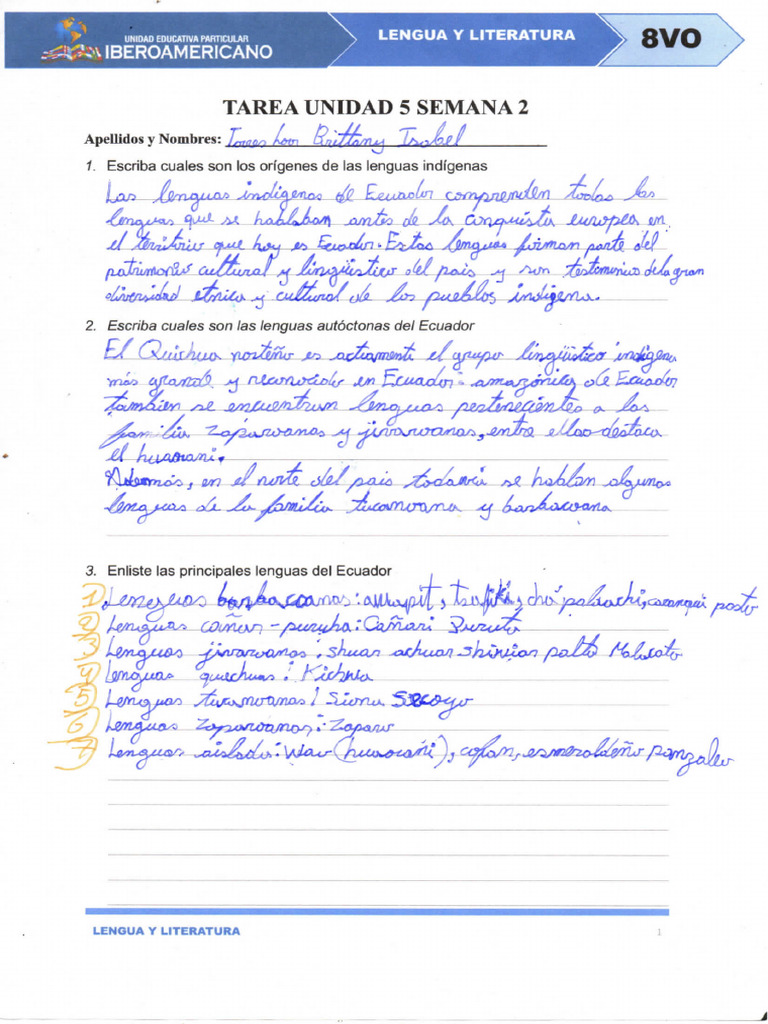 UNIDAD EDUCATIVA PARTICULAR
IBEROAMERICANO
LENGUA Y LITERATURA
8VO
TAREA UNIDAD 5 SEMANA 2
Apellidos y Nombres: Brittany Isabel
1. Escriba cuales son los orígenes de las lenguas indígenas
Las lenguas indigenas de Ecuador comprenden todas las
lenguas que se hablaban antes de la conquista europea en
el territrio que hoy es Ecuador. Estas lenguas forman parte del
patrimonio cultural y lingüistico del pais y son testimonico de la gran
diversidad etnica y cultural de los pueblos indigena.
2. Escriba cuales son las lenguas autóctonas del Ecuador
El Quichua norteño es el grupo lingüistico indigena
más grande y reconocido en Ecuador amazónica de Ecuador
tambien se encuentran lenguas pertenecientes a las
familia zaparoanas y jivaroanas, entre ellas destaca
el huaorani.
Además, en el norte del pais todavia se hablan algunas
lenguas de la familia tucanoana y barbacoana
3. Enliste las principales lenguas del Ecuador
1 Lenguas barbacoanas: awapit, tsafiki, cha palaachi, caranqui pasto
2 Lenguas cañar-puruha: Cañari Puruta
3 Lenguas jivaroanas: shuar achuar shiwiar palta Malacato
4 Lenguas quechuas: Kichwa
5 Lenguas tucanoanas: Siona Secoya
6 Lenguas zaparoanas: Zaparo
7 Lenguas aislado: wao (huaorañi), cofan, esmeraldeño panzaleo
LENGUA Y LITERATURA
1